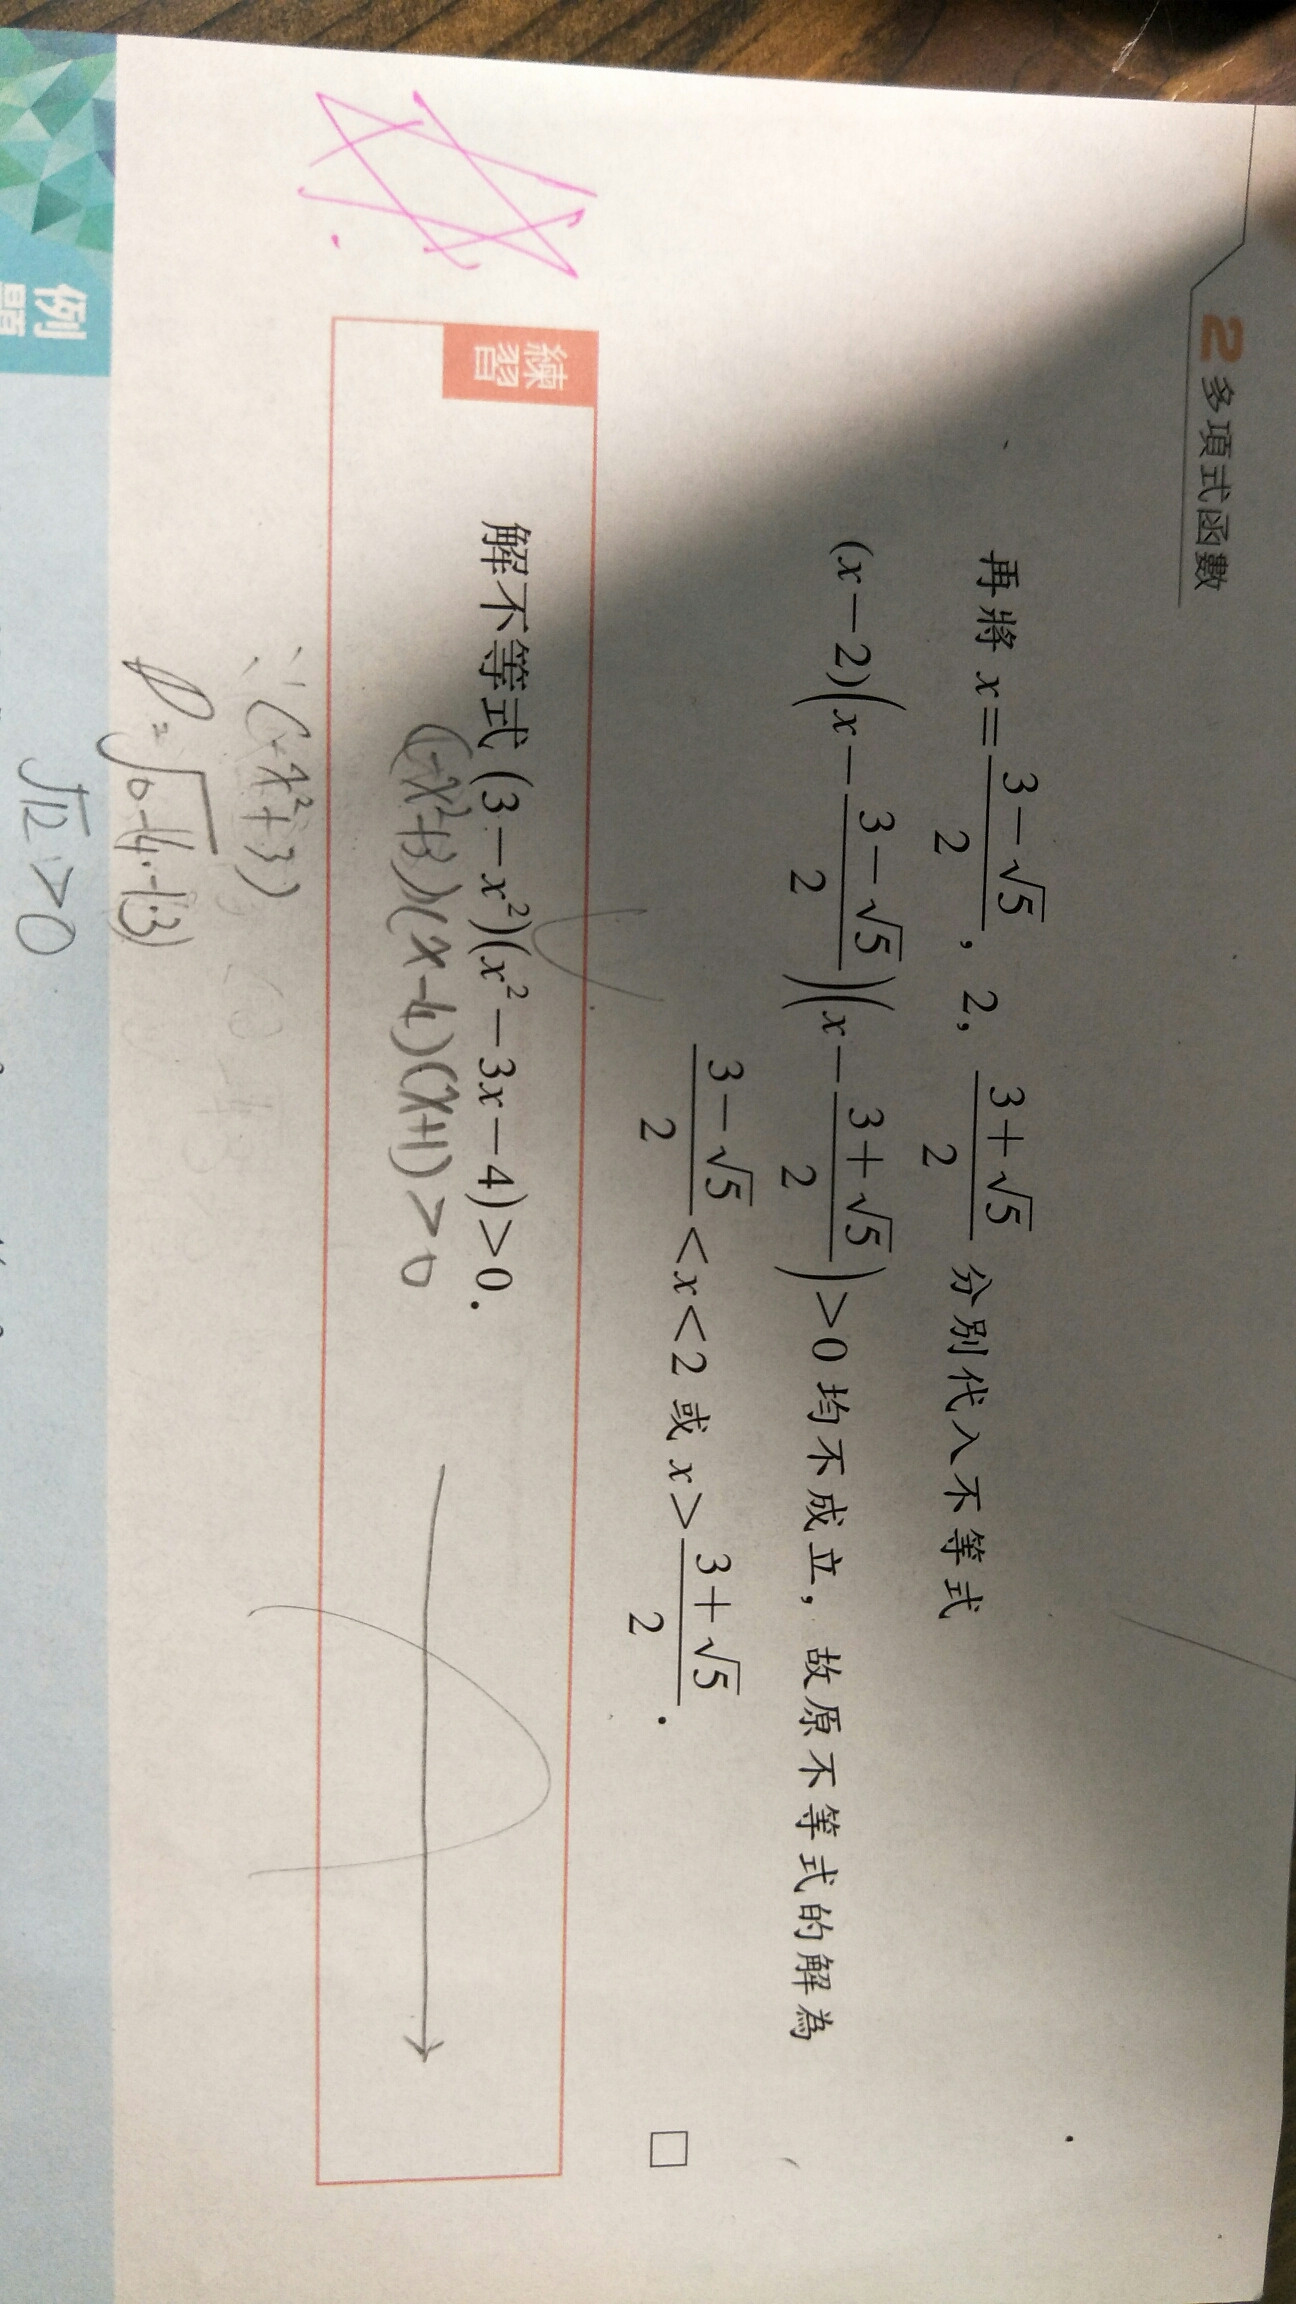 2 多項式函數
再將 x=\frac{3-\sqrt{5}}{2}, 2, \frac{3+\sqrt{5}}{2} 分別代入不等式
(x-2)(x-\frac{3-\sqrt{5}}{2})(x-\frac{3+\sqrt{5}}{2})>0 均不成立，故原不等式的解為
\frac{3-\sqrt{5}}{2}<x<2 或 x>\frac{3+\sqrt{5}}{2}．
□
練習
解不等式 (3-x²)(x²-3x-4)>0．
(-x²+3)(x-4)(x+1)>0
(-x²+3)
D=\sqrt{0-4·-1·3}
\sqrt{12}>0
例題